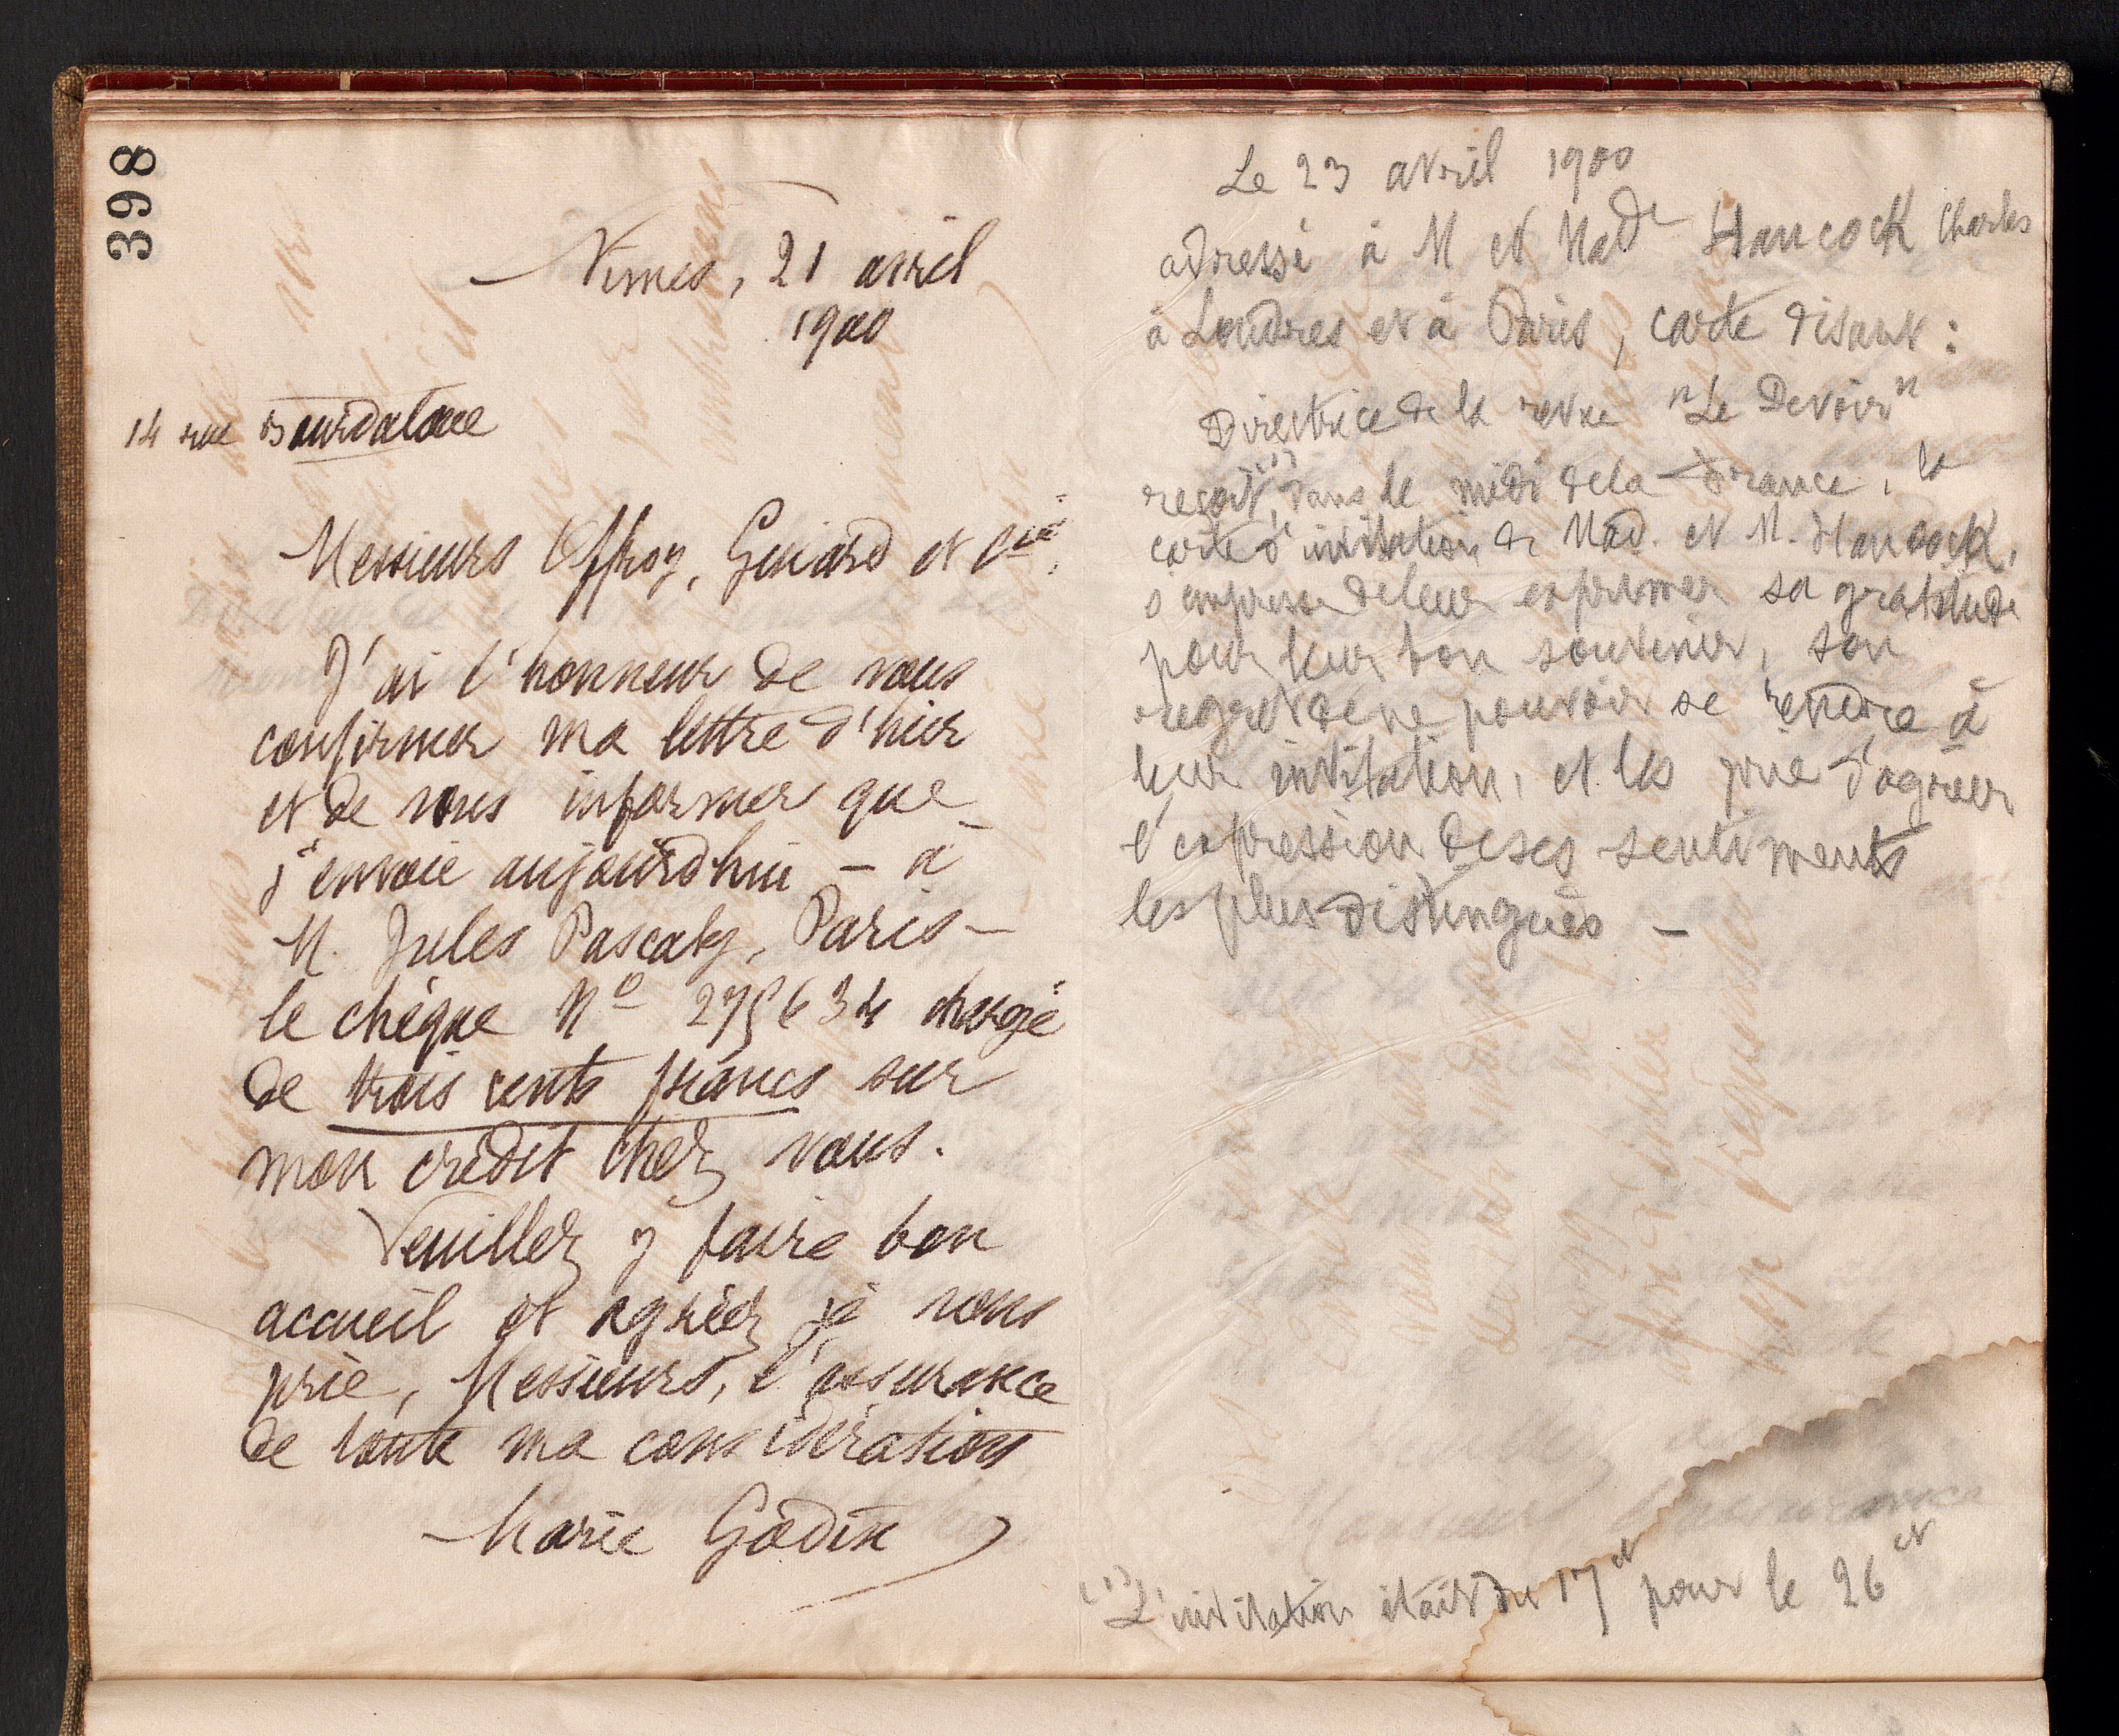 398
Nimes, 21 avril
1900
14 rue Bourdaloue
Messieurs Offroy, Guiard et Cie,
J'ai l'honneur de vous
confirmer ma lettre d'hier
et de vous informer que
j'envoie aujourd'hui – à
M. Jules Pascaly, Paris –
le chèque No 275634 chargé
de trois cents francs sur
mon crédit chez vous.
Veuillez y faire bon
accueil et agréez je vous
prie, Messieurs, l'assurance
de toute ma considération
Marie Godin
Le 23 avril 1900
adressé à M et Made Hancock Charles
à Londres et à Paris, carte disant :
Directrice de la revue "Le Devoir"
reçoit (1), dans le midi de la France, la
carte d'invitation de Mad. et M. Hancock,
s'empresse de leur exprimer sa gratitude
pour leur bon souvenir, son
regret de ne pouvoir se rendre à
leur invitation, et les prie d'agréer
l'expression de ses sentiments
les plus distingués –
(1) L'invitation était du 17 et pour le 26 ct